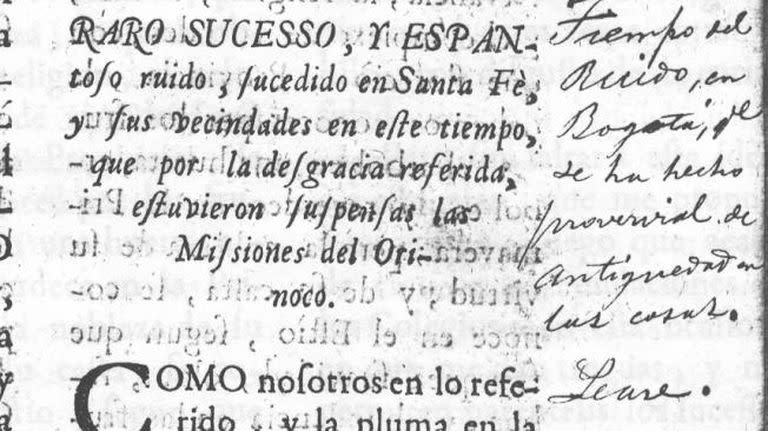 RARO SUCESSO, Y ESPAN-
toſo ruido, ſucedido en Santa Fè,
y ſus vecindades en eſte tiempo,
que por la deſgracia referida,
eſtuvieron ſuſpenſas las
Miſsiones del Ori-
noco.
COMO noſotros en lo refe-
rido, y la pluma en la
Tiempo del
Ruido, en
Bogotá, qe
se ha hecho
provervial de
antiguedad en
las cosas.
Lease.